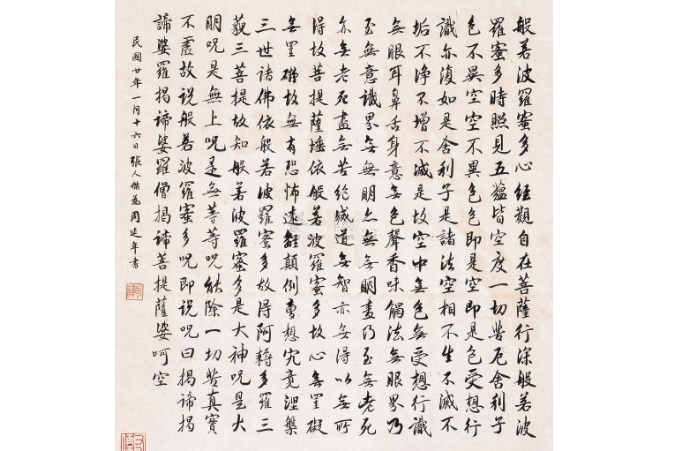 般若波羅蜜多心經觀自在菩薩行深般若波
羅蜜多時照見五蘊皆空度一切苦厄舍利子
色不異空空不異色色即是空空即是色受想行
識亦復如是舍利子是諸法空相不生不滅不
垢不淨不增不減是故空中無色無受想行識
無眼耳鼻舌身意無色聲香味觸法無眼界乃
至無意識界無無明亦無無明盡乃至無老死
亦無老死盡無苦滅道無智亦無得以無所
得故菩提薩埵依般若波羅蜜多故心無罣礙
無罣礙故無有恐怖遠離顛倒夢想究竟涅槃
三世諸佛依般若波羅蜜多故得阿耨多羅三
藐三菩提故知般若波羅蜜多是大神呪是大
明呪是無上呪是無等等呪能除一切苦真實
不虛故說般若波羅蜜多呪即說呪曰揭諦揭
諦婆羅揭諦婆羅僧揭諦菩提薩婆呵空
民國廿年一月十六日張人傑為周延年書